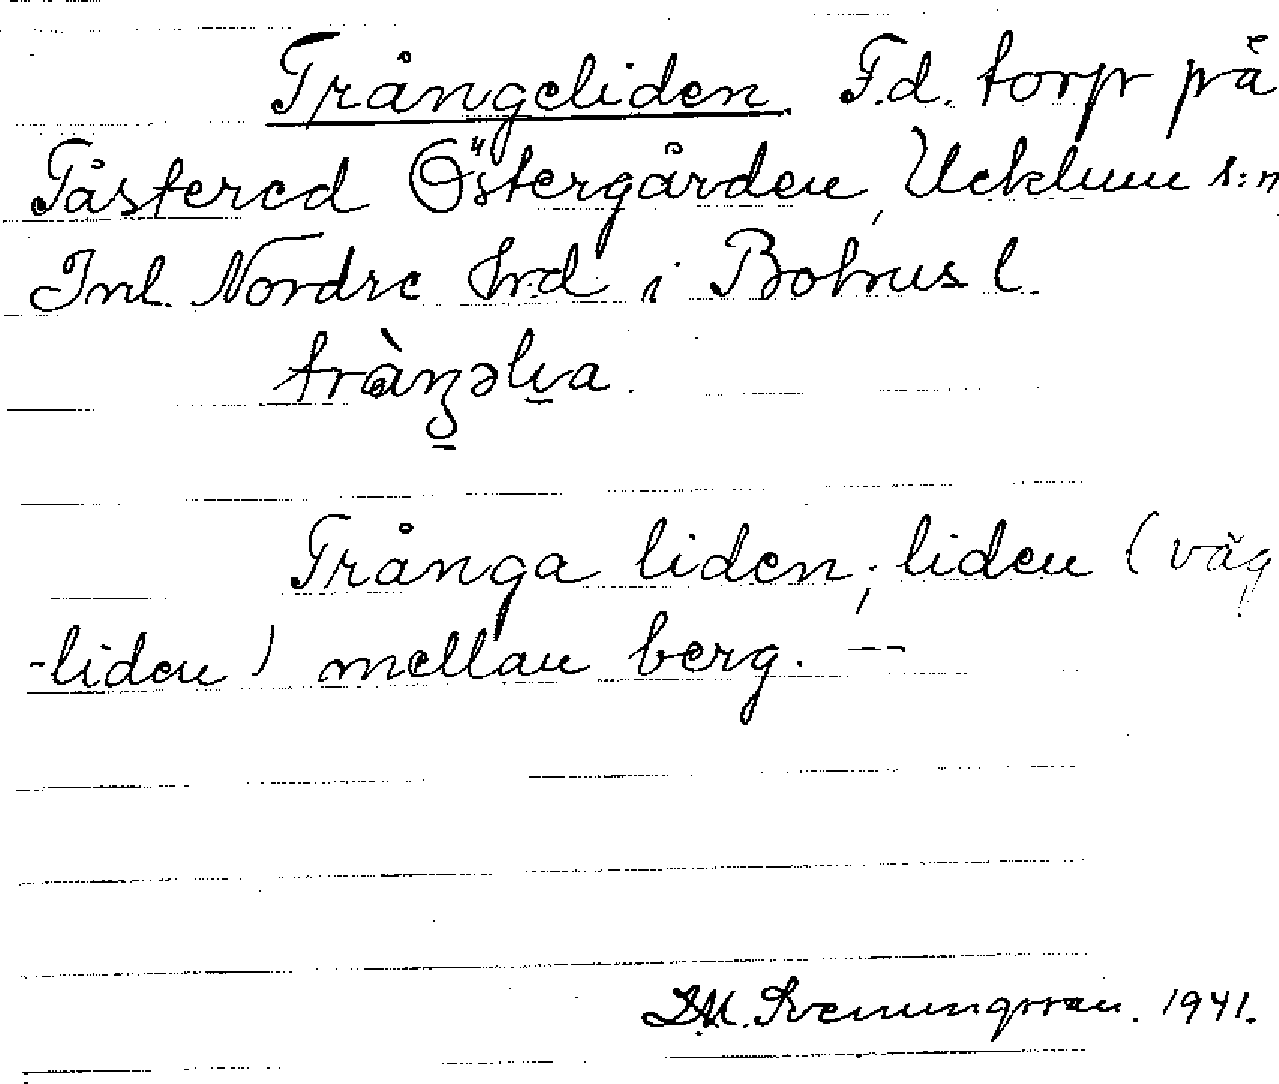 Trångeliden. F.d. torp på
Tåstered Östergården, Ucklum s:n
Inl. Nordre hrd i Bohusl.
Trånga liden; liden (väg
-liden) mellan berg. —
D.M. Svenungsson. 1941.